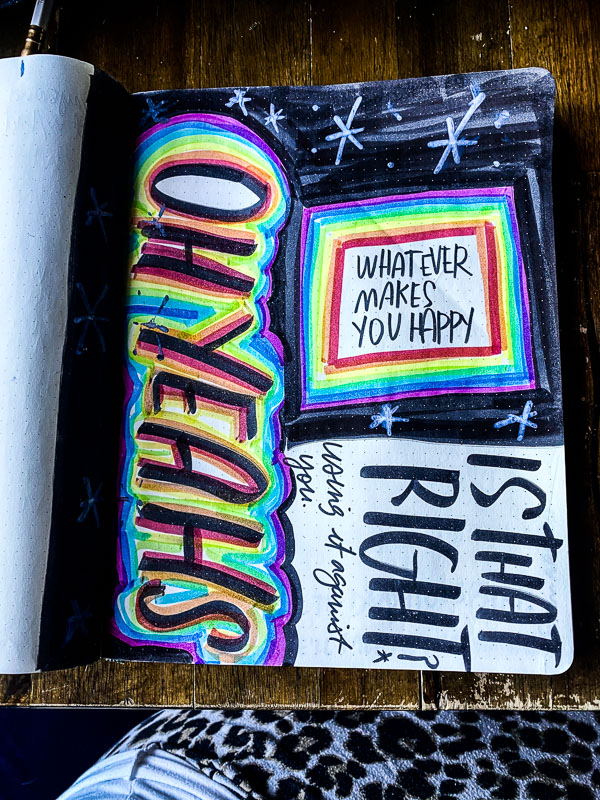 OH YEAHS
WHATEVER
MAKES
YOU HAPPY
IS THAT
RIGHT?*
using it against
you.